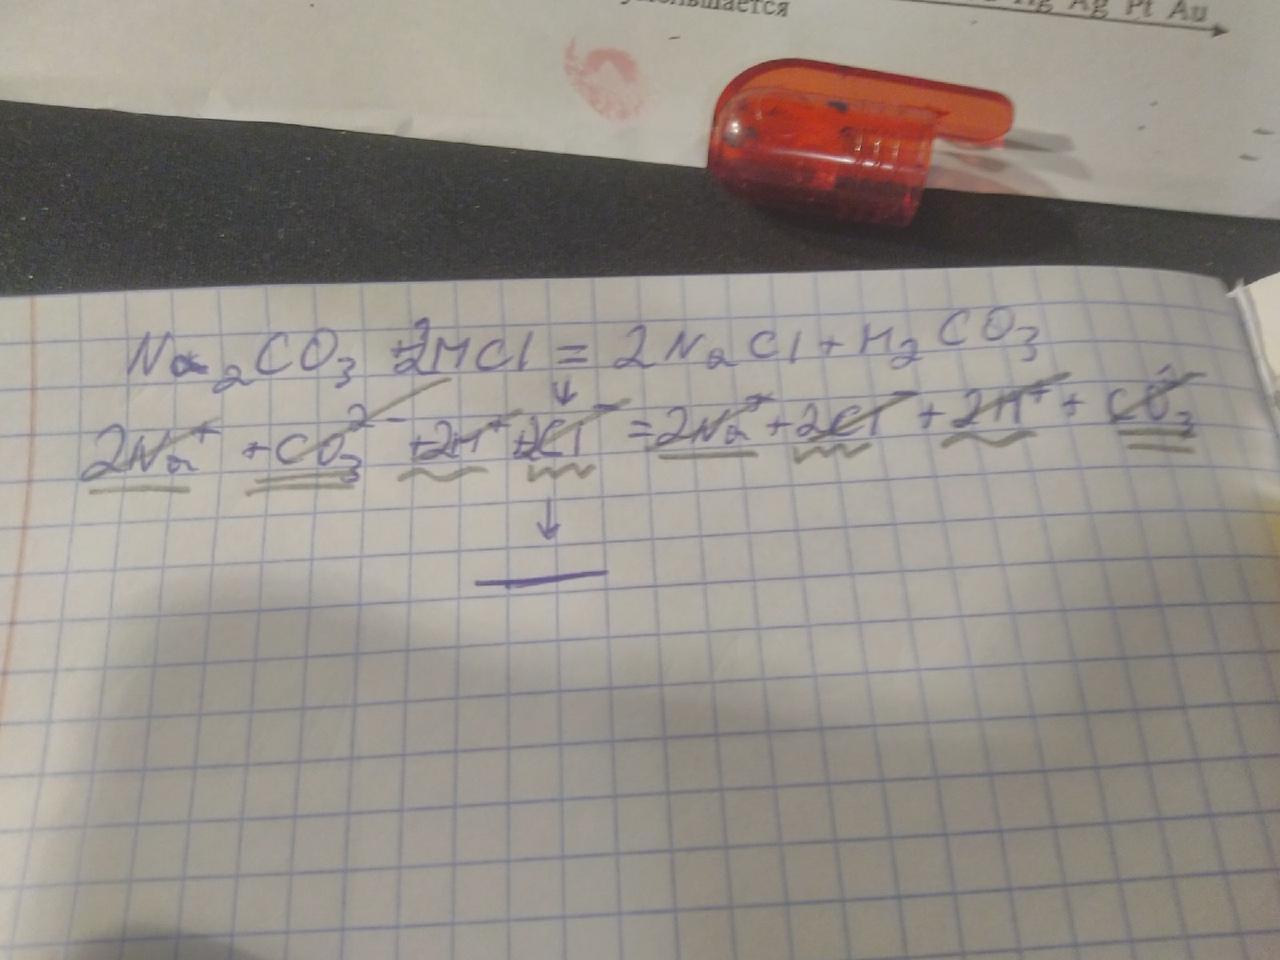 Hg Ag Pt Au
Na₂CO₃ + 2HCl = 2NaCl + H₂CO₃
↓
2Na⁺ + CO₃²⁻ + 2H⁺ + 2Cl⁻ = 2Na⁺ + 2Cl⁻ + 2H⁺ + CO₃
↓